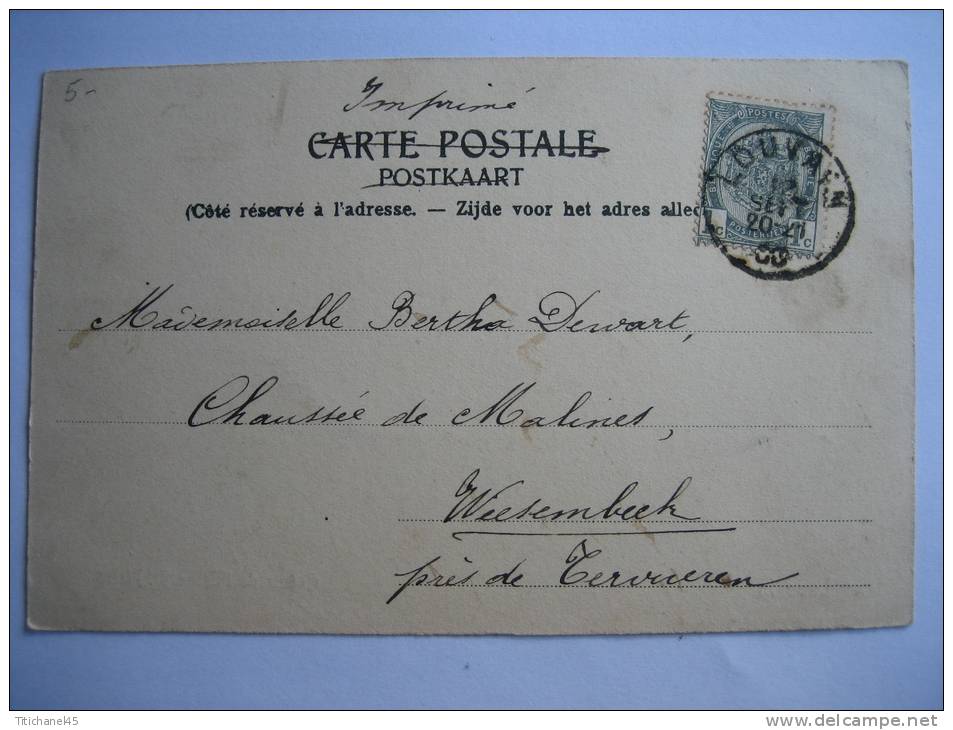 5-
Imprimé
CARTE POSTALE
POSTKAART
(Côté réservé à l'adresse. — Zijde voor het adres allee
POSTES
1 C 1 C
LOUVAIN
SEPT
20-21
Mademoiselle Bertha Dewart,
Chaussée de Malines,
Weesembeek
près de Tervueren
Ttichane45
www.delcampe.net